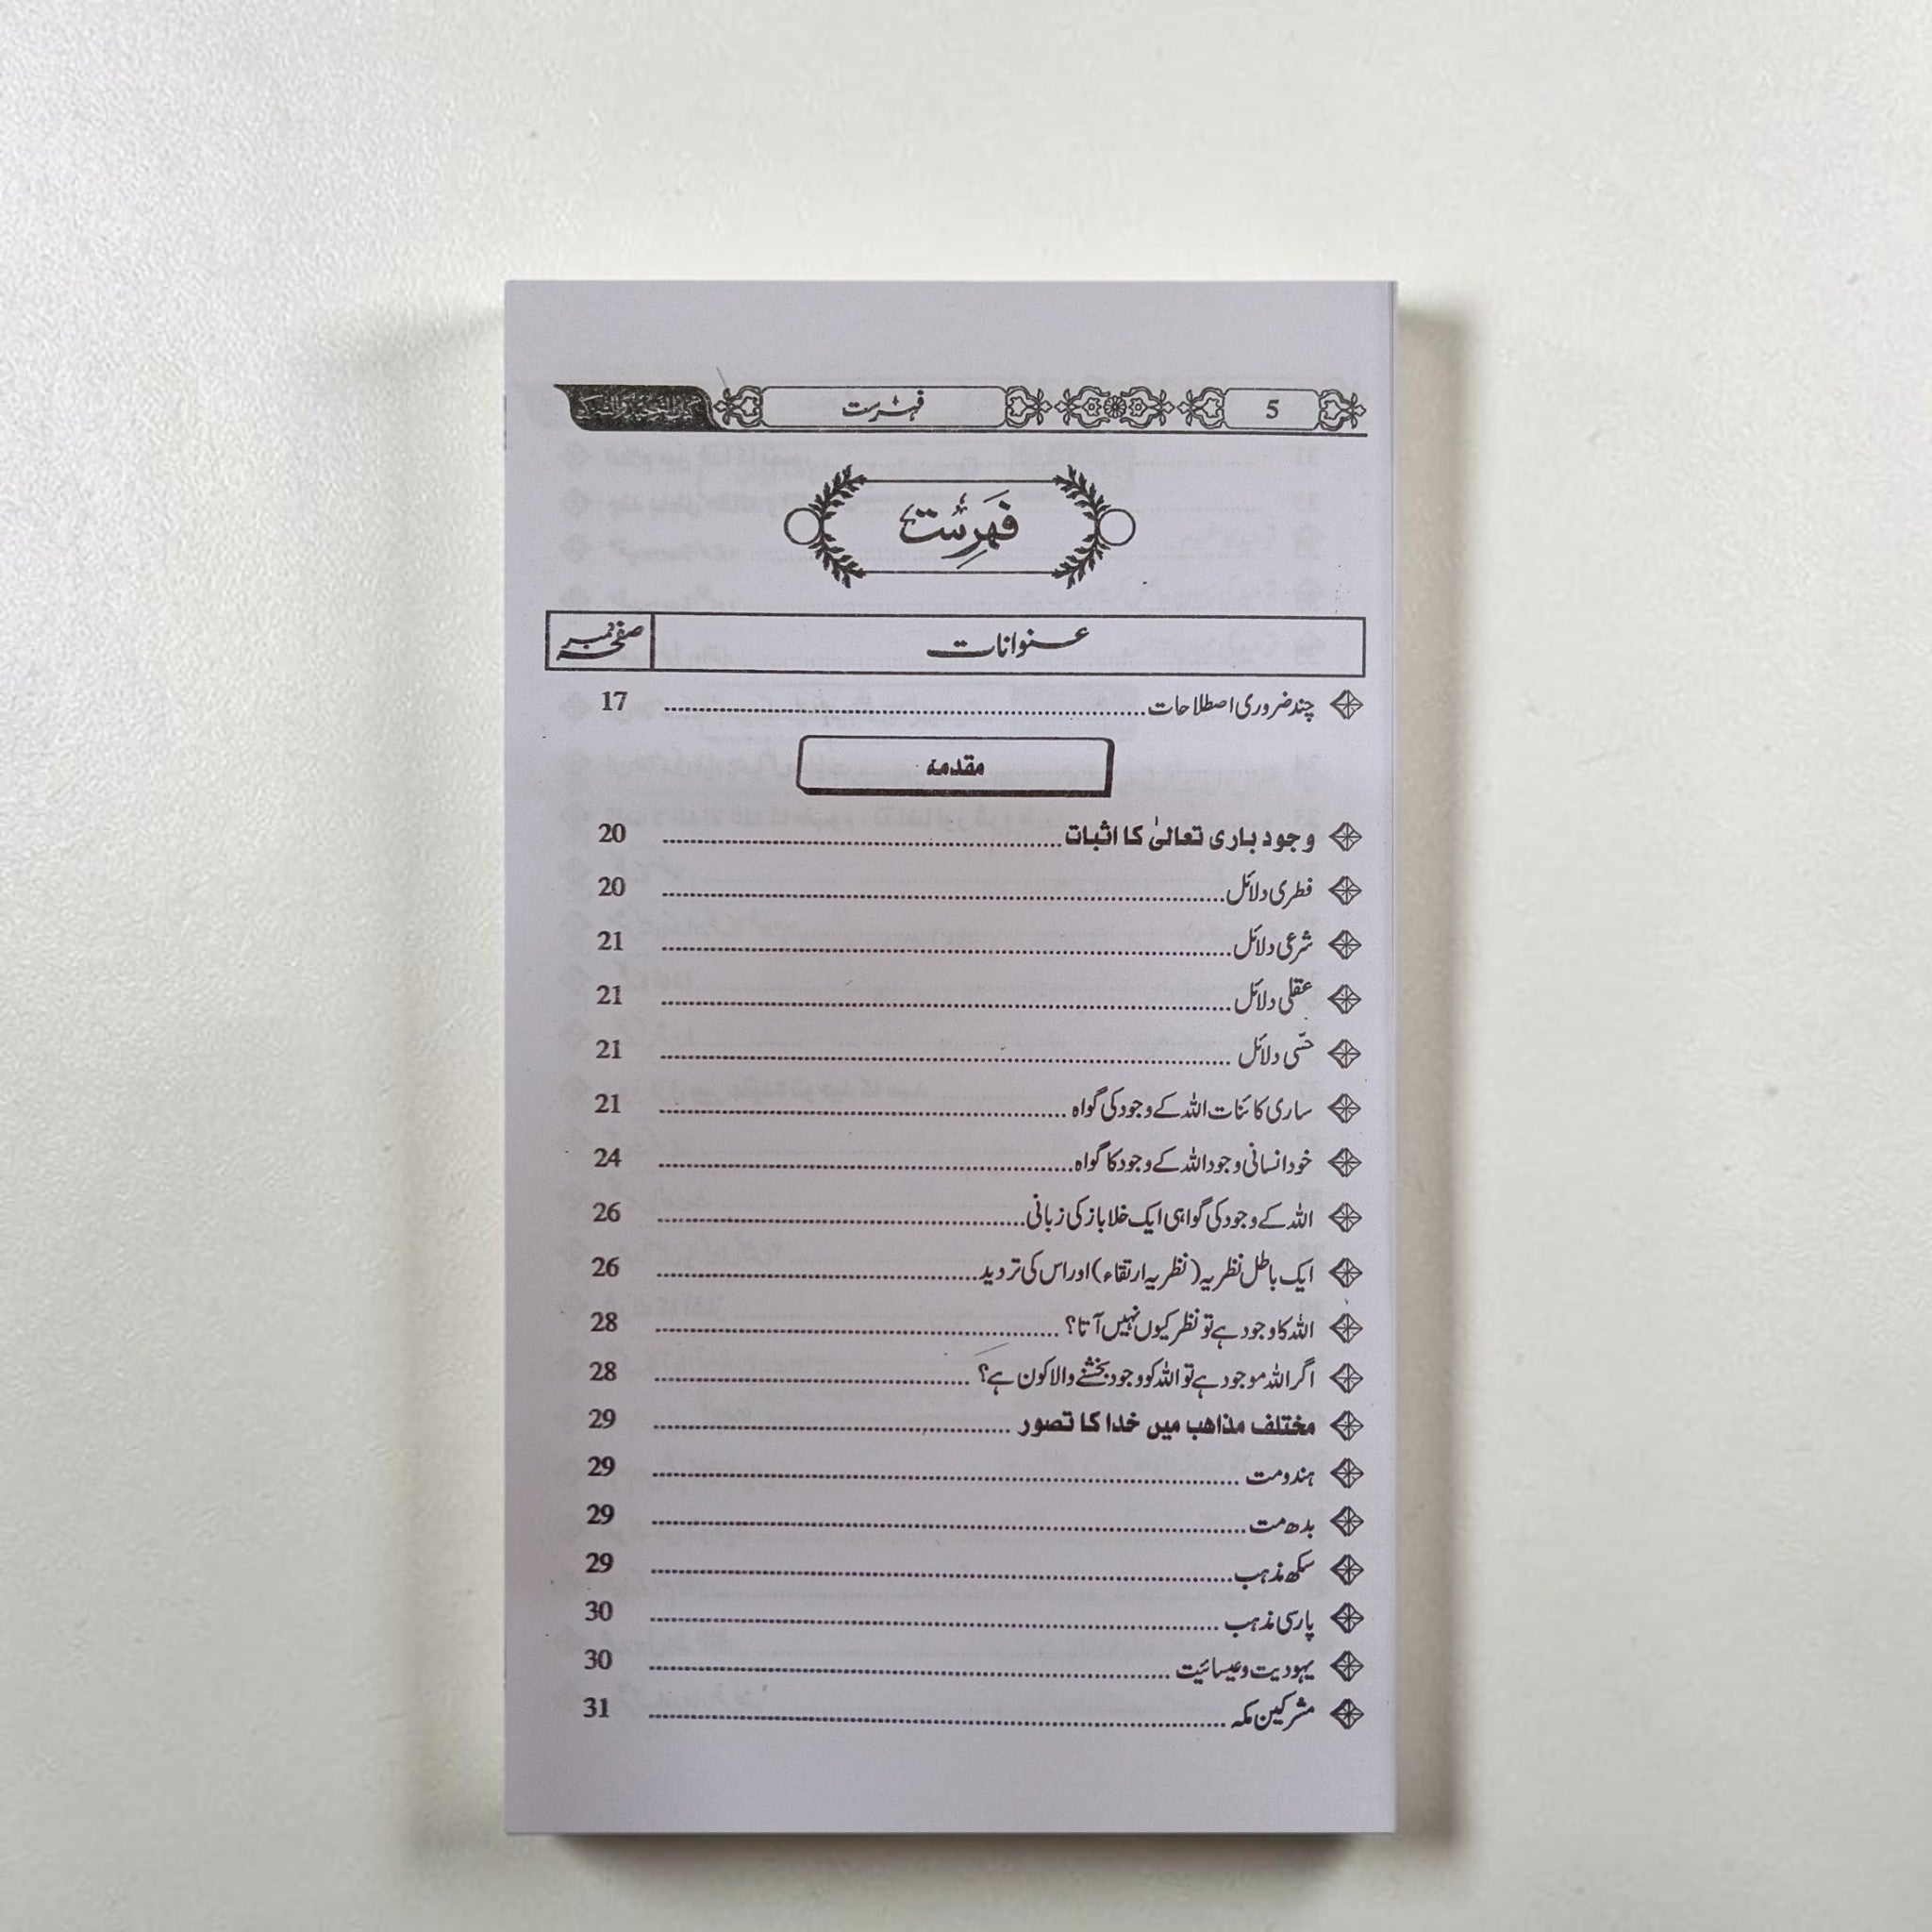 5 فہرست
فہرست
عنوانات صفحہ نمبر
چند ضروری اصطلاحات 17
مقدمہ
وجود باری تعالیٰ کا اثبات 20
فطری دلائل 20
شرعی دلائل 21
عقلی دلائل 21
حسّی دلائل 21
ساری کائنات اللہ کے وجود کی گواہ 21
خود انسانی وجود اللہ کے وجود کا گواہ 24
اللہ کے وجود کی گواہی ایک خلا باز کی زبانی 26
ایک باطل نظریہ (نظریہ ارتقاء) اور اس کی تردید 26
اللہ کا وجود ہے تو نظر کیوں نہیں آتا؟ 28
اگر اللہ موجود ہے تو اللہ کو وجود بخشنے والا کون ہے؟ 28
مختلف مذاہب میں خدا کا تصور 29
ہندومت 29
بدھ مت 29
سکھ مذہب 29
پارسی مذہب 30
یہودیت و عیسائیت 30
مشرکین مکہ 31